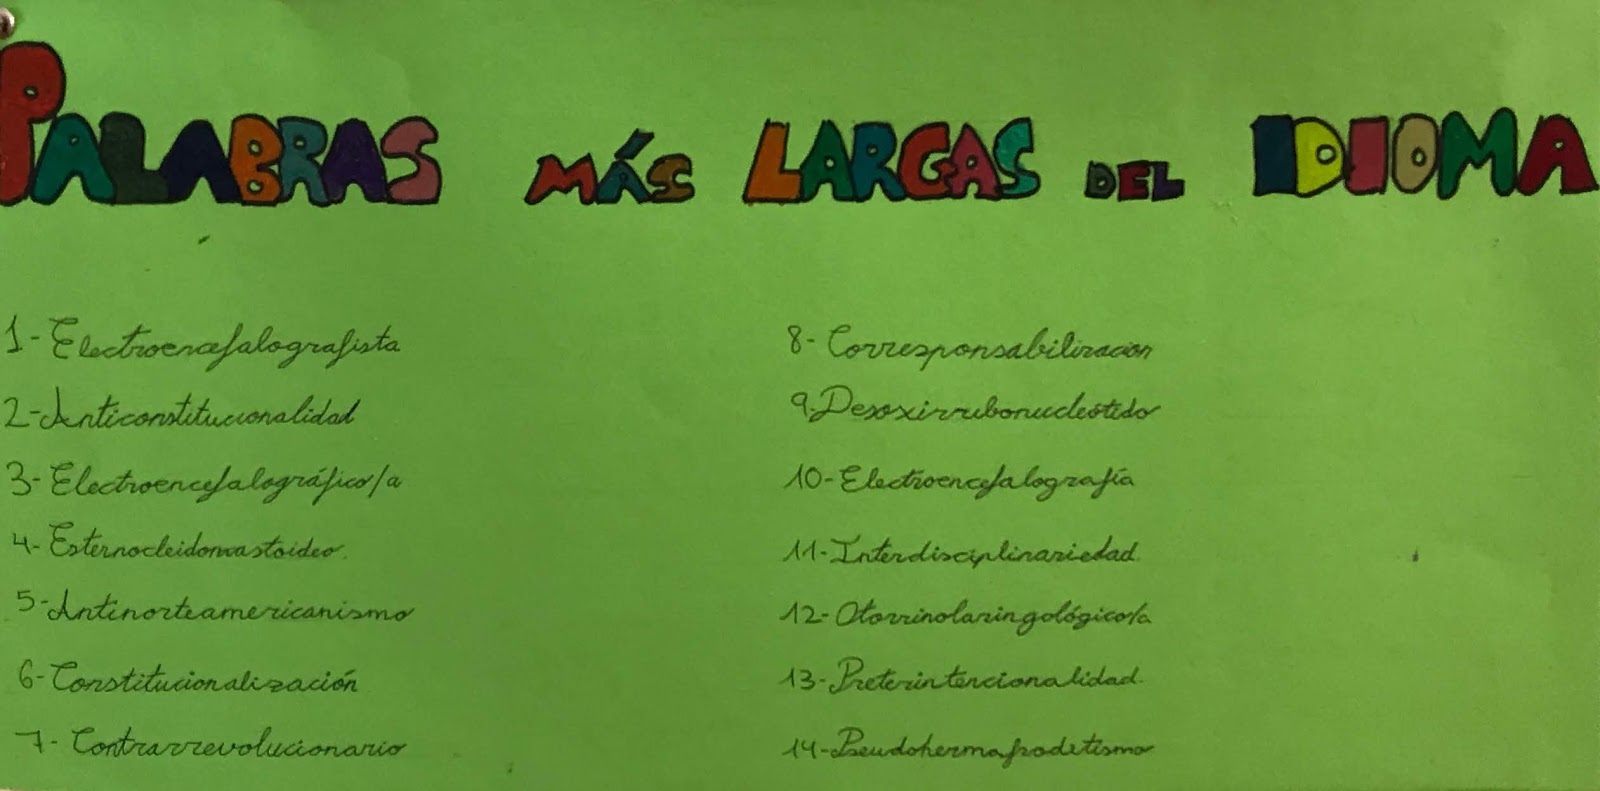 PALABRAS MÁS LARGAS DEL IDIOMA
1- Electroencefalografista
2- Anticonstitucionalidad
3- Electroencefalográfico/a
4- Esternocleidomastoideo.
5- Antinorteamericanismo
6- Constitucionalización
7- Contrarrevolucionario
8- Corresponsabilizacion
9- Desoxirribonucleótido
10- Electroencefalografía
11- Interdisciplinariedad.
12- Otorrinolaringológico/a
13- Preterintencionalidad.
14- Pseudohermafroditismo